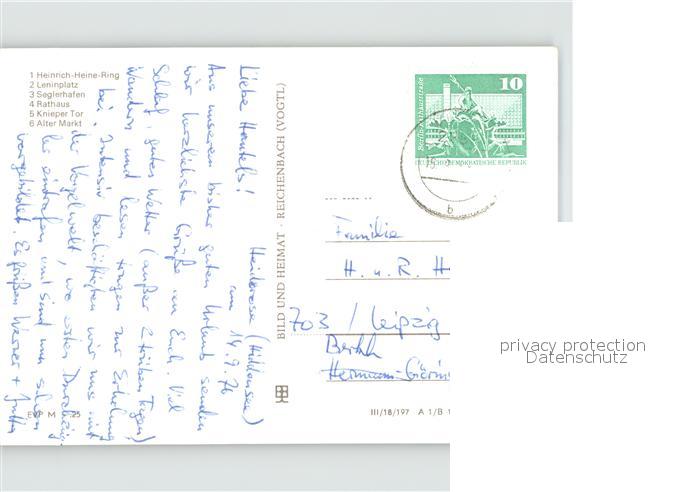 1 Heinrich-Heine-Ring
2 Leninplatz
3 Seglerhafen
4 Rathaus
5 Knieper Tor
6 Alter Markt
Heiderose (Hiddensee)
am 14.9.76
Liebe Hentels!
Aus unserem bisher guten Urlaub senden
wir herzlichste Grüße an Euch. Viel
Schlaf, gutes Wetter (außer 2 trüben Tagen)
Wandern und Lesen tragen zur Erholung
bei. Intensiv beschäftigten wir uns mit
der Vogelwelt, wo erste Durchzüg-
ler eintrafen und sind nun schon
vorgebildet. Es grüßen Werner + Jutta
EVP M ,25
BILD UND HEIMAT · REICHENBACH (VOGTL)
10
DEUTSCHE DEMOKRATISCHE REPUBLIK
b
Familie
H. u. R. H
703 / Leipzig
Hermann-
III/18/197 A 1/B 1
privacy protection
Datenschutz